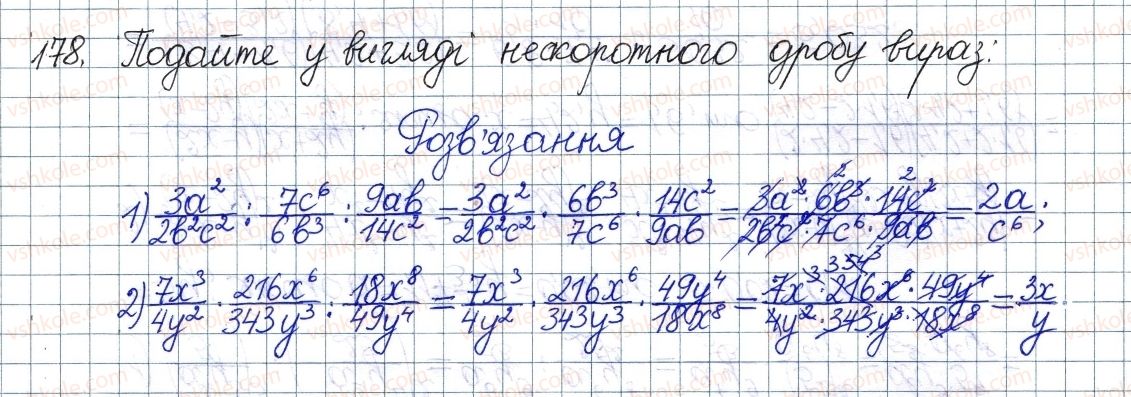 178. Подайте у вигляді нескоротного дробу вираз:
Розв'язання
1) 3a²/2b²c² : 7c⁶/6b³ : 9ab/14c² = 3a²/2b²c² · 6b³/7c⁶ · 14c²/9ab = 3a²·6b³·14c²/2b²c²·7c⁶·9ab = 2a/c⁶;
2) 7x³/4y² · 216x⁶/343y³ : 18x⁸/49y⁴ = 7x³/4y² · 216x⁶/343y³ · 49y⁴/18x⁸ = 7x³·216x⁶·49y⁴/4y²·343y³·18x⁸ = 3x/y